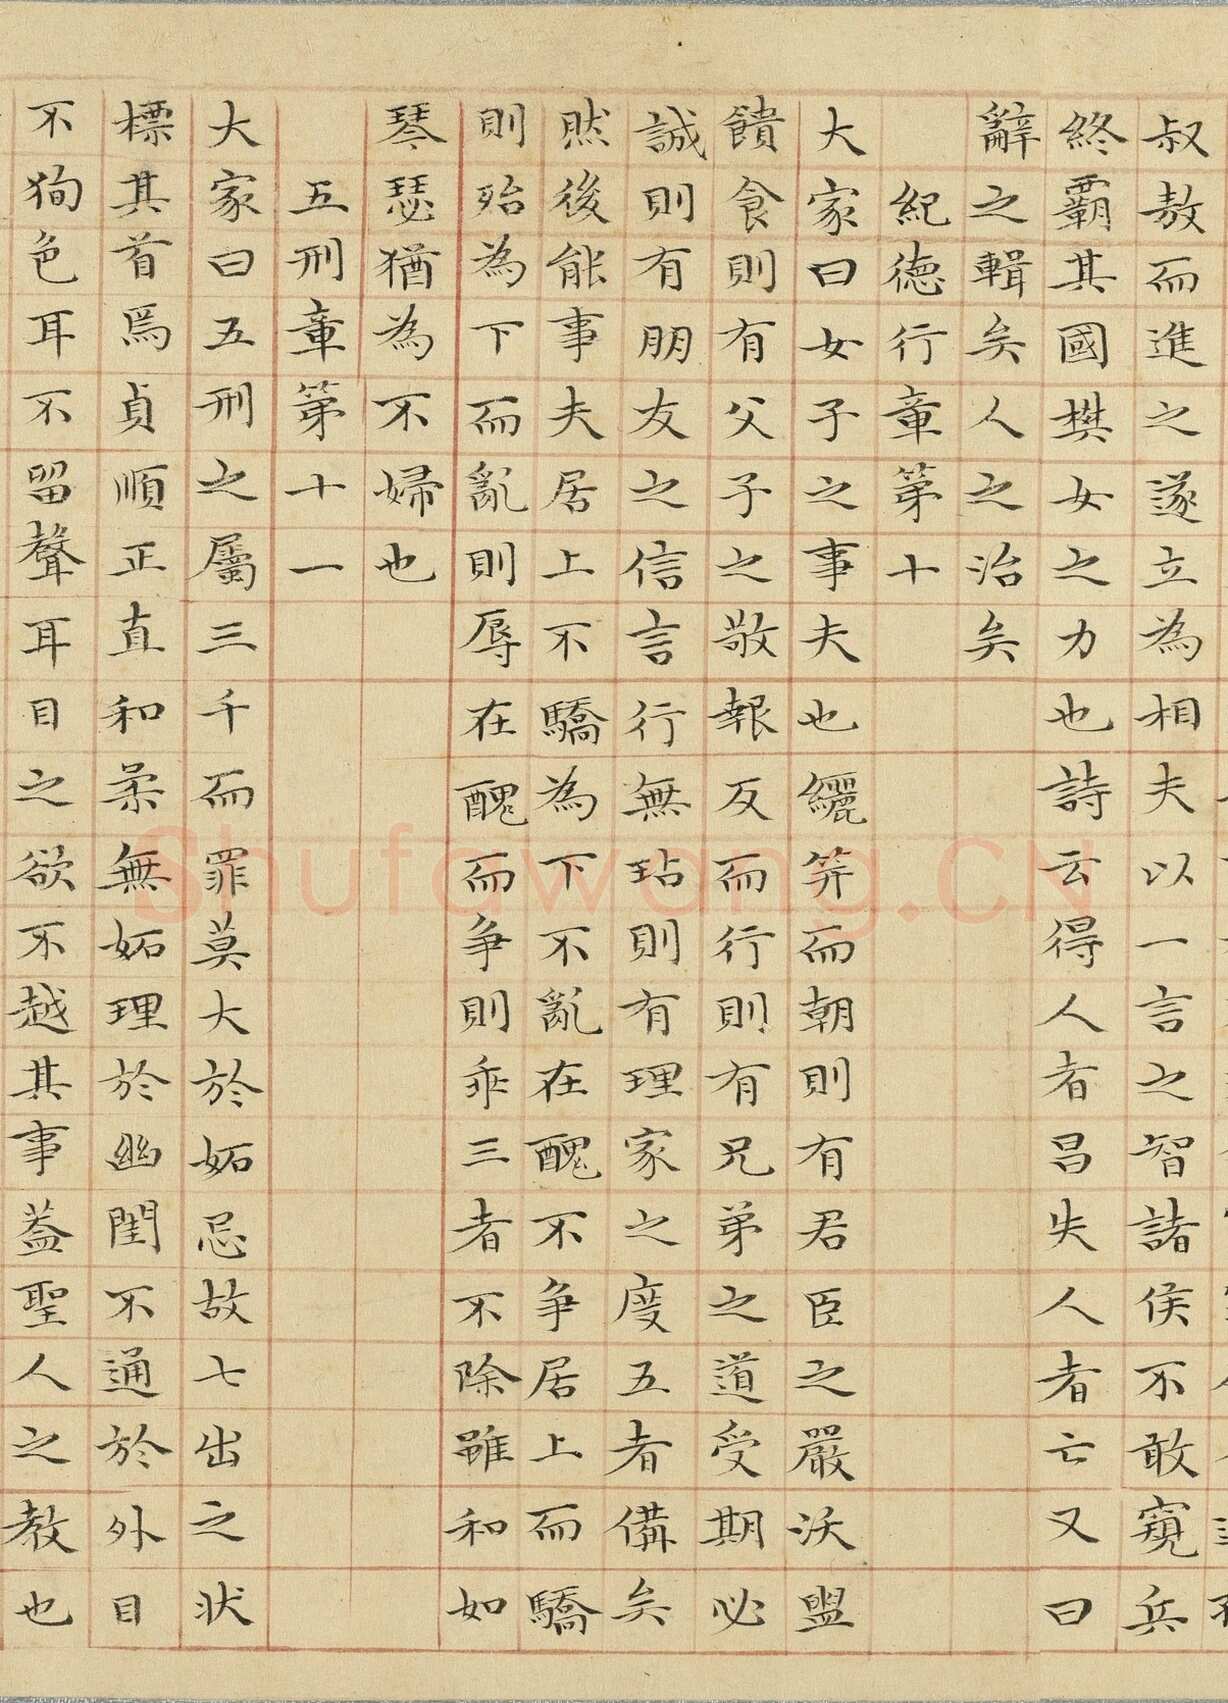 叔敖而進之遂立為相夫以一言之智諸侯不敢窺兵
終霸其國樊女之力也詩云得人者昌失人者亡又曰
辭之輯矣人之治矣
紀德行章第十
大家曰女子之事夫也纚笄而朝則有君臣之嚴沃盥
饋食則有父子之敬報反而行則有兄弟之道受期必
誠則有朋友之信言行無玷則有理家之度五者備矣
然後能事夫居上不驕為下不亂在醜不争居上而驕
則殆為下而亂則辱在醜而争則乖三者不除雖和如
琴瑟猶為不婦也
五刑章第十一
大家曰五刑之屬三千而罪莫大於妬忌故七出之狀
標其首焉貞順正直和柔無妬理於幽閨不通於外目
不狥色耳不留聲耳目之欲不越其事蓋聖人之教也
Shufawang.CN